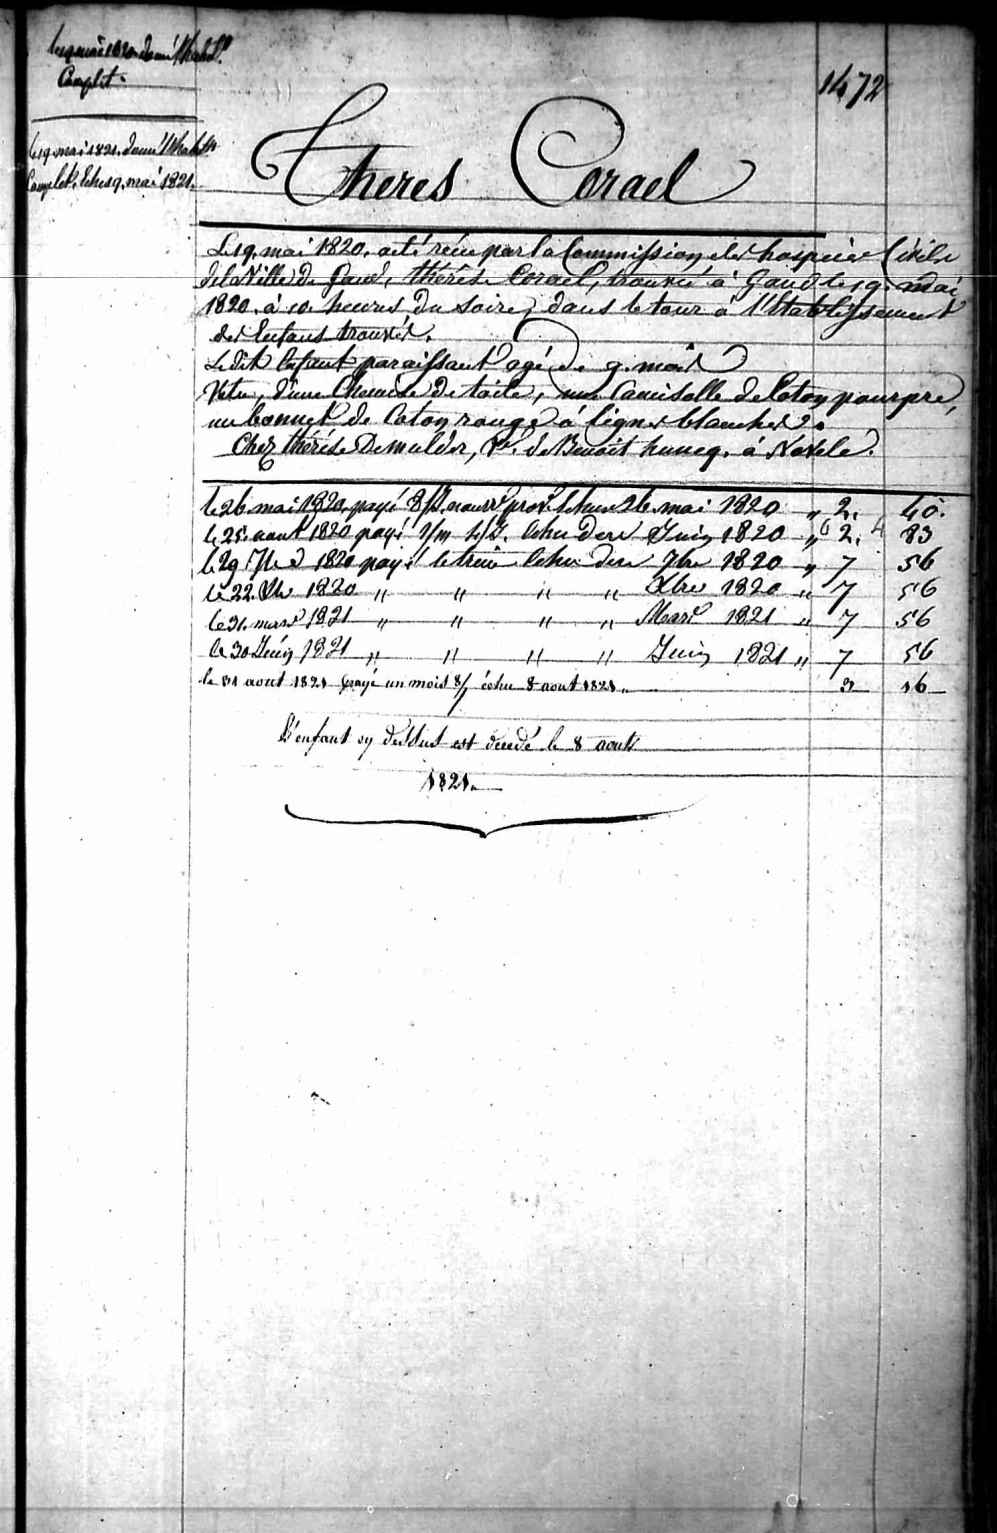 Le 19 mai 1820 donné l'habill.t
Complet.
1472
Le 19. mai 1821. donné l'habill.t
Complet. Echu 19. mai 1821.
Theres Corael
Le 19. mai 1820. a été reçue par la Commission des hospices Civils
de la Ville de Gand, thérèse Corael, trouvée à Gand le 19. mai
1820. à 10 heures du soire, dans le tour à l'Etablissement
des Enfans trouvés.
Le dit Enfant paraissant agé de 9. mois
Vetu, d'une Chemise de toile, une Camisolle de Coton pourpre,
un bonnet de Coton rouge à lignes blanches.
Chez thérèse Demulder, V.e de Benoit huncq. à Nevele.
le 26. mai 1820. payé 8/f. nourr. prov. Echu 26. mai 1820 " 2. 40.
le 25. aout 1820 payé 1/m 4/J. Echu der Juin 1820 " 2. 83
le 29 7bre 1820 payé le trim Echu der 7bre 1820 " 7 56
le 22. Xbre 1820 " " " " Xbre 1820 " 7 56
le 31. mars 1821 " " " " Mars 1821 " 7 56
le 30 Juin 1821 " " " " Juin 1821 " 7 56
le 31 aout 1821 payé un mois 8/J échu 8 aout 1821 " 3 16
L'enfant cy dessus est décedé le 8 aout
1821.